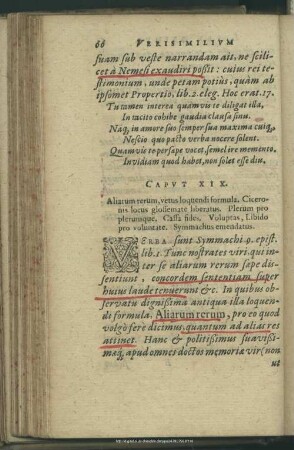 66 VERISIMILIVM
suam sub veste narrandam ait, ne scili-
cet à Nemesi exaudiri possit: cuius rei te-
stimonium, unde petam potius, quàm ab
ipsomet Propertio, lib. 2. eleg. Hoc erat. 17.
Tu tamen interea quamvis te diligat illa,
In tacito cohibe gaudia clausa sinu.
Nāq, in amore suo semper sua maxima cuiq,
Nescio quo pacto verba nocere solent.
Quamvis te persæpe vocet, semel ire memento,
Invidiam quod habet, non solet esse diu.
CAPVT XIX.
Aliarum rerum, vetus loquendi formula. Cicero-
nis locus glossemate liberatus. Plerum pro
plerumque. Cassa fides. Voluptas, Libido
pro voluntate. Symmachus emendatus.
VERBA sunt Symmachi 9. epist.
lib. 1. Tunc nostrates viri, qui in-
ter se aliarum rerum sæpe dis-
sentiunt, concordem sententiam super
huius laude tenuerunt &c. In quibus ob-
servatu dignissima antiqua illa loquen-
di formula, Aliarum rerum, pro eo quod
volgò fere dicimus, quantum ad alias res
attinet. Hanc & politissimus suavissi-
musq, apud omnes doctos memoriæ vir (non
ut